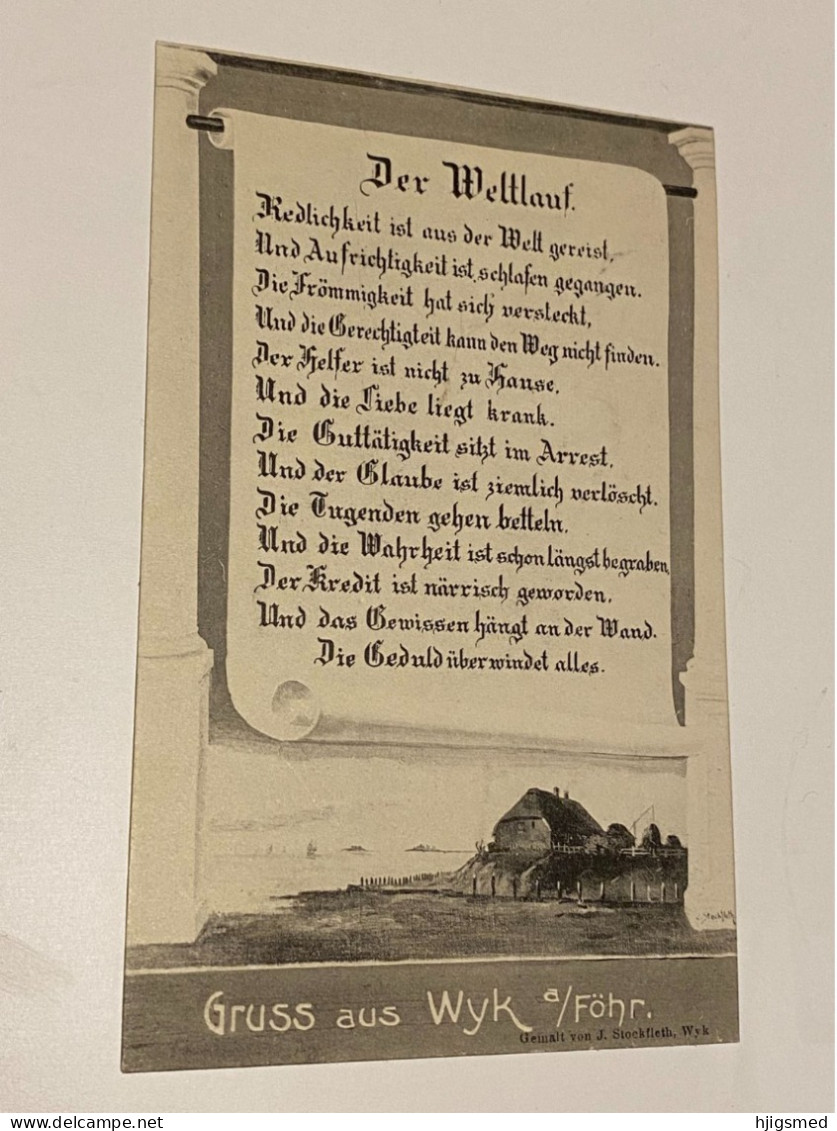 Der Weltlauf.
Redlichkeit ist aus der Welt gereist,
Und Aufrichtigkeit ist schlafen gegangen.
Die Frömmigkeit hat sich versteckt,
Und die Gerechtigteit kann den Weg nicht finden.
Der Helfer ist nicht zu Hause,
Und die Liebe liegt krank.
Die Guttätigkeit sitzt im Arrest,
Und der Glaube ist ziemlich verlöscht.
Die Tugenden gehen betteln,
Und die Wahrheit ist schon längst begraben,
Der Kredit ist närrisch geworden,
Und das Gewissen hängt an der Wand.
Die Geduld überwindet alles.
Gruss aus Wyk a/Föhr.
Gemalt von J. Stockfleth, Wyk
hjigsmed